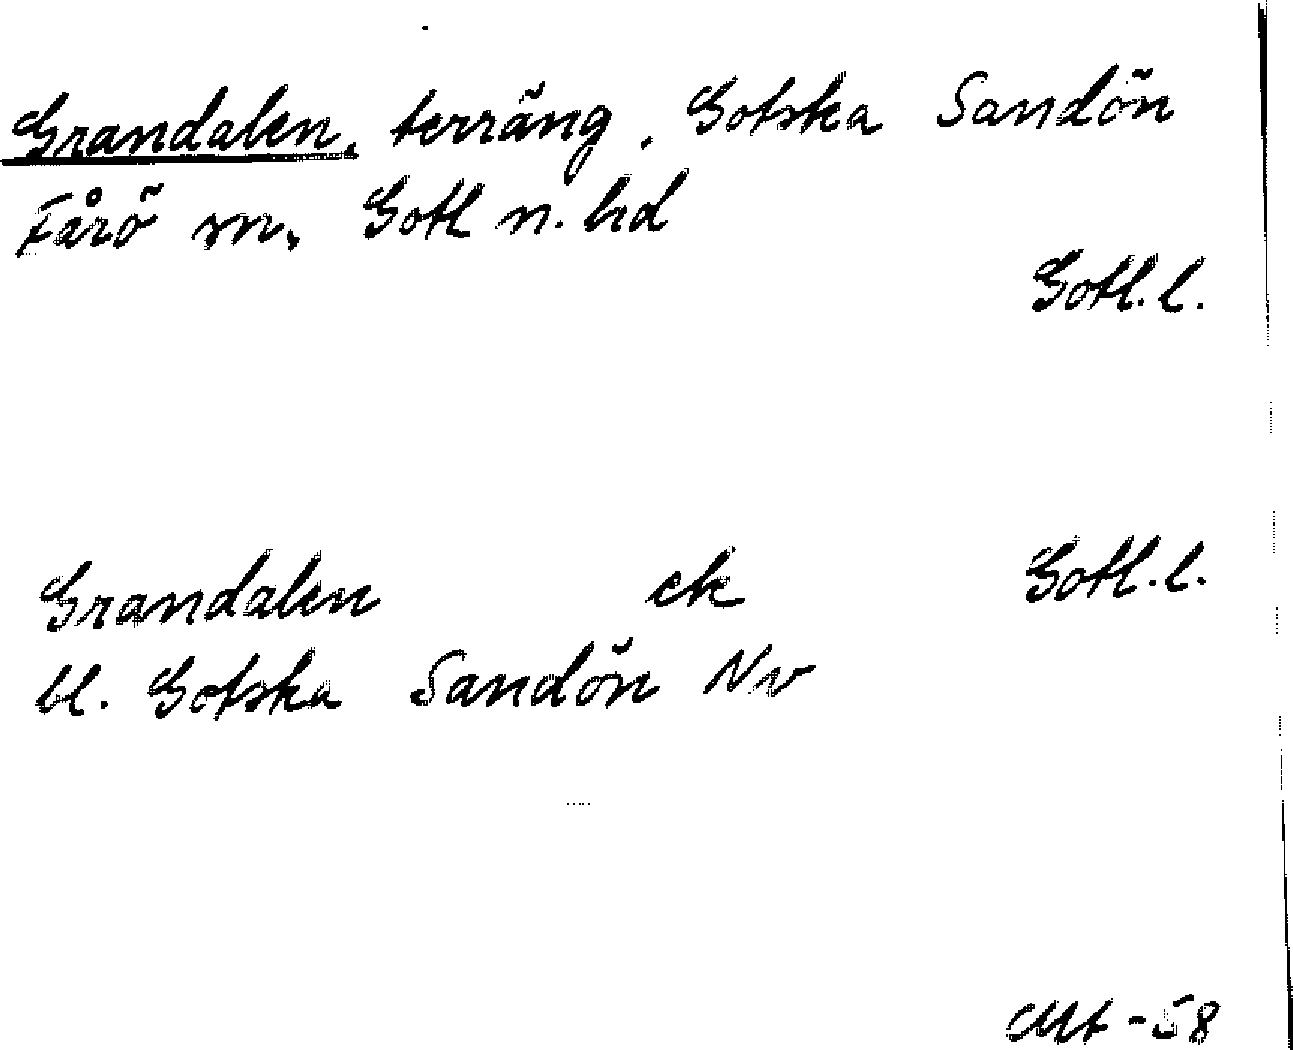 Grandalen, terräng, Gotska Sandön
Fårö sn, Gotl n. hd
Gotl. l.
Grandalen ek Gotl. l.
bl. Gotska Sandön Nv
-58